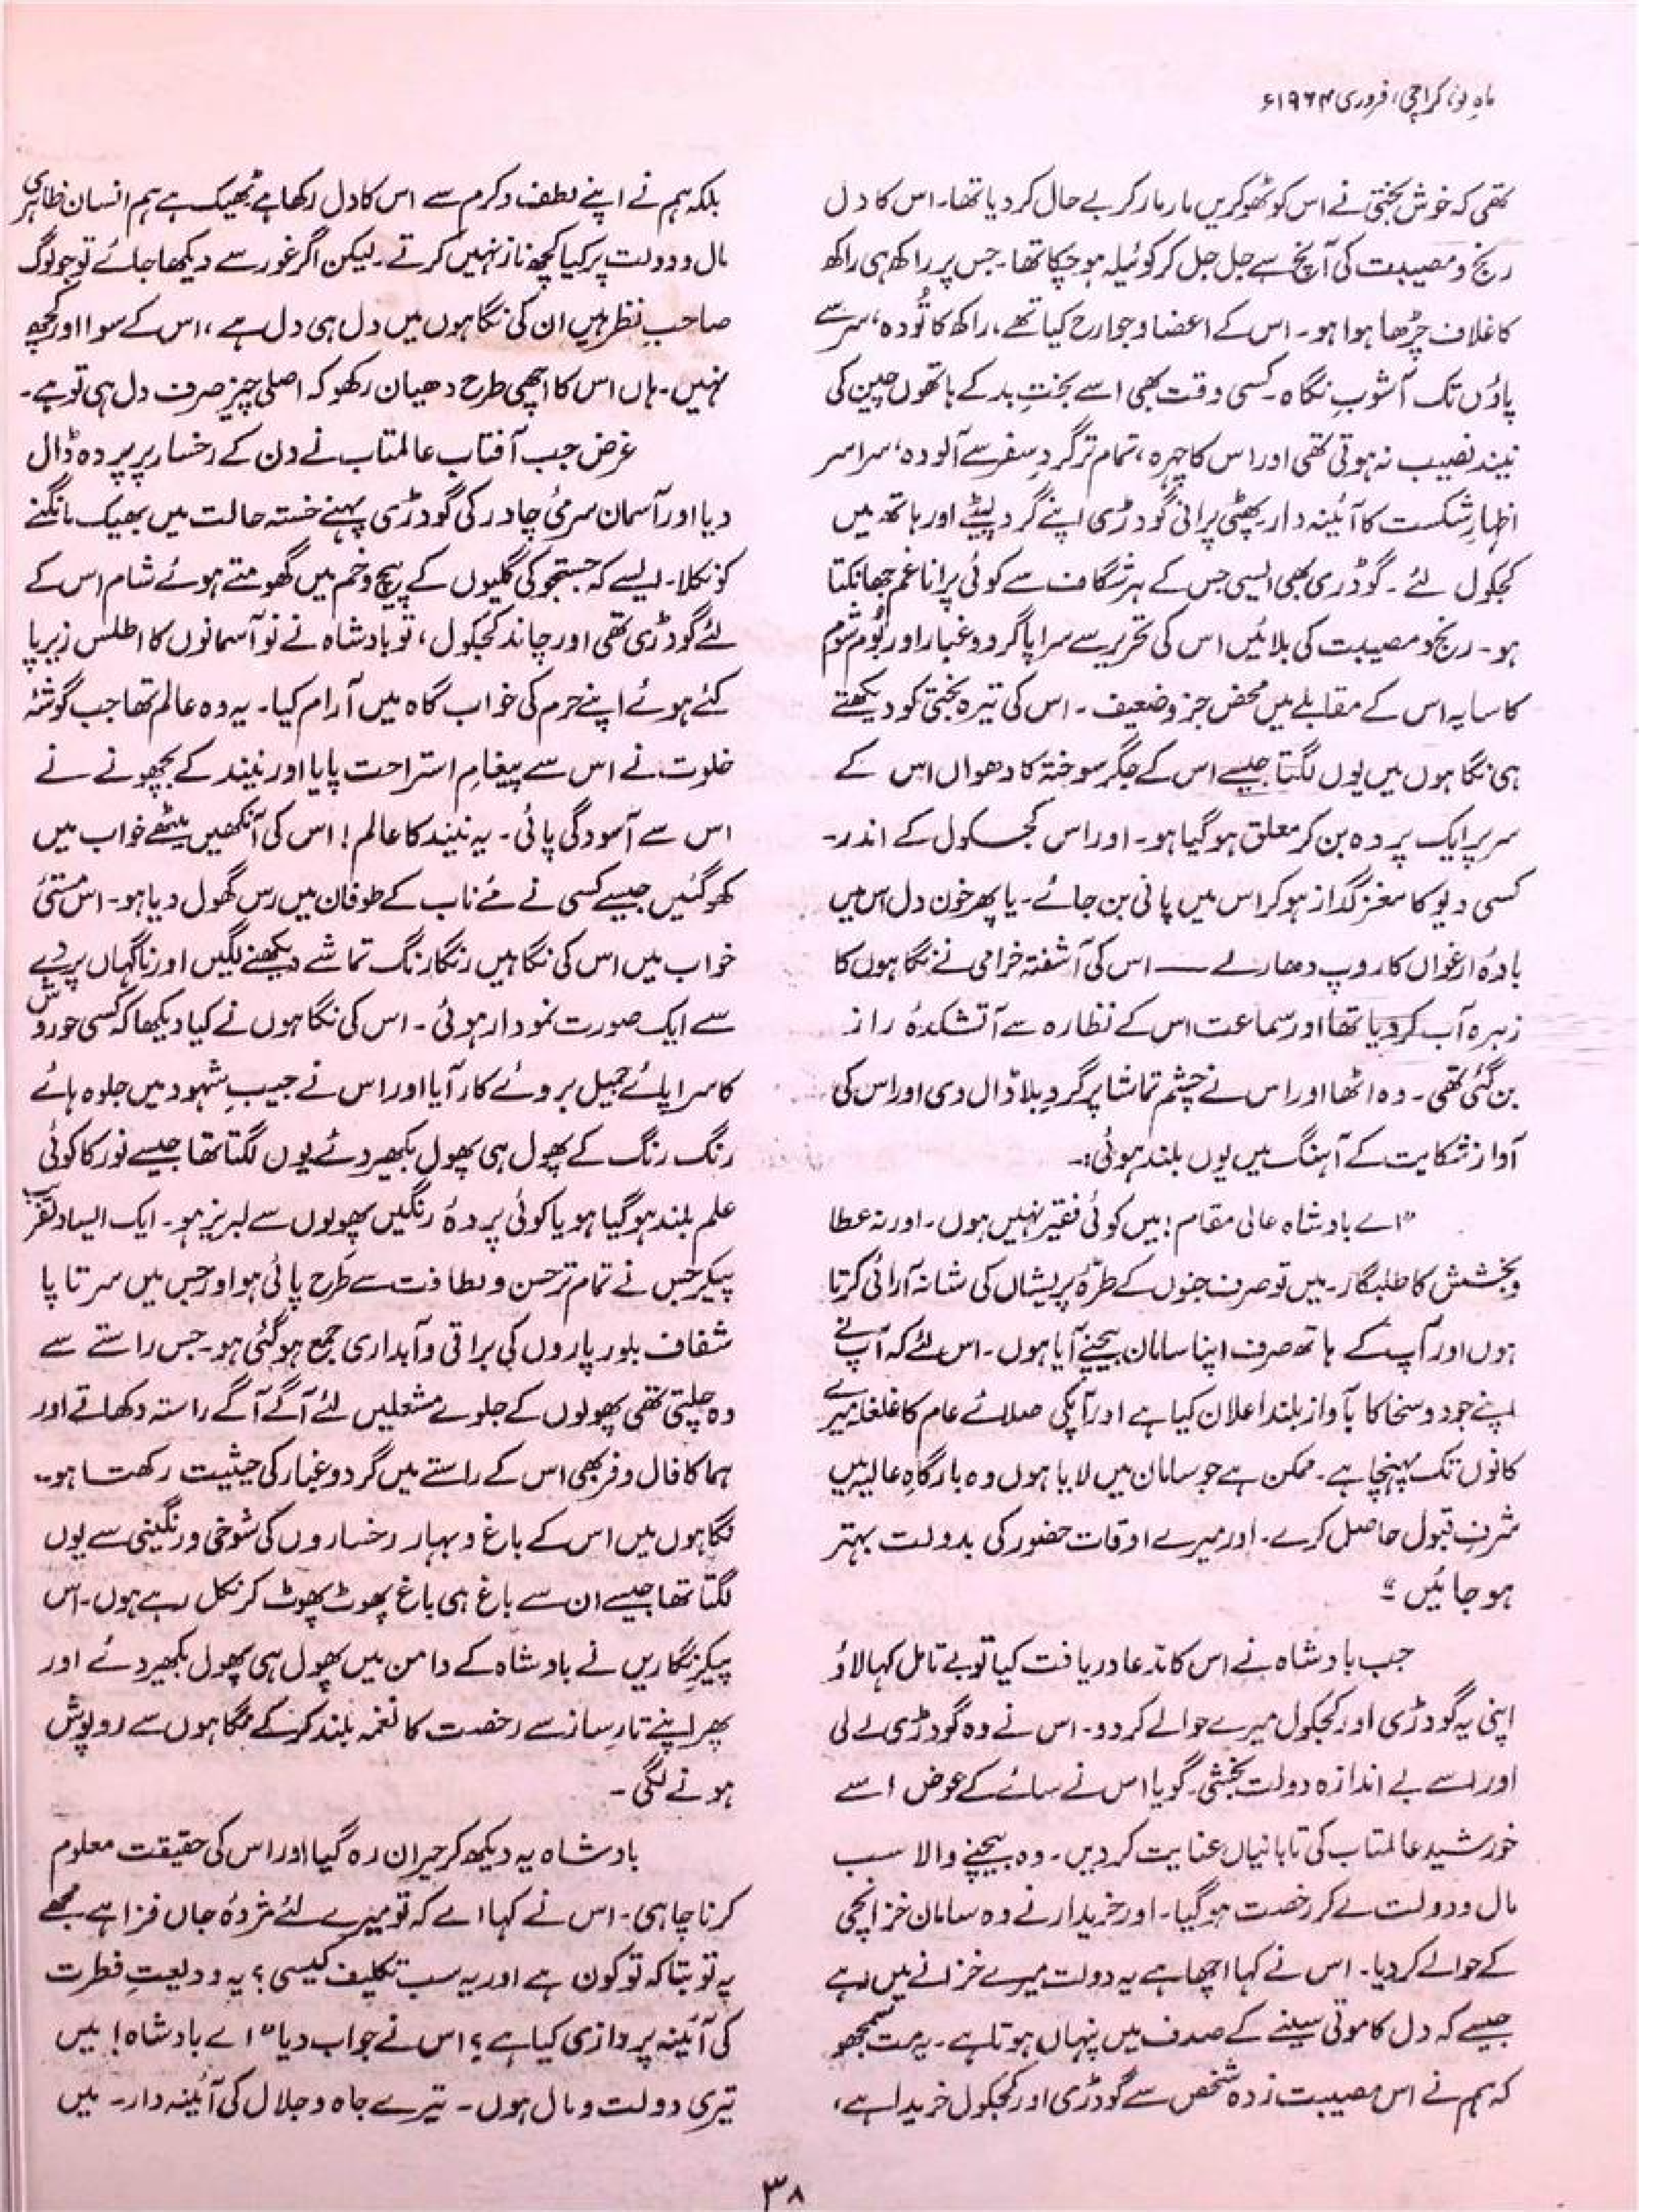 ماہِ نو، کراچی، فروری ۱۹۶۴ء
تھی کہ خوش بختی نے اس کو ٹھوکریں مار مار کر بے حال کر دیا تھا۔ اس کا دل
رنج و مصیبت کی آنچ سے جل جل کر کوئیلہ ہو چکا تھا۔ جس پر راکھ ہی راکھ
کا غلاف چڑھا ہوا ہو۔ اس کے اعضا و جوارح کیا تھے، راکھ کا تُودہ، سر سے
پاؤں تک آشوبِ نگاہ۔ کسی وقت بھی اسے بختِ بد کے ہاتھوں چین کی
نیند نصیب نہ ہوتی تھی اور اس کا چہرہ، تمام تر گردِ سفر سے آلودہ، سراسر
اظہارِ شکست کا آئینہ دار پھٹی پرانی گودڑی اپنے گرد لپیٹے اور ہاتھ میں
کجکول لئے۔ گوڈری بھی ایسی جس کے ہر شگاف سے کوئی پرانا غم جھانکتا
ہو۔ رنج و مصیبت کی بلائیں اس کی تحریر سے سراپا گرد و غبار اور بُوم شوم
کا سایہ اس کے مقابلے میں محض جزوِ ضعیف۔ اس کی تیرہ بختی کو دیکھتے
ہی نگاہوں میں یوں لگتا جیسے اس کے جگر سوختہ کا دھواں اس کے
سر پر ایک پردہ بن کر معلق ہو گیا ہو۔ اور اس کجسکول کے اندر۔
کسی دیو کا مغز گداز ہو کر اس میں پانی بن جائے۔ یا پھر خونِ دل اس میں
بادۂ ارغواں کا روپ دھارلے — اس کی آشفتہ خرامی نے نگاہوں کا
زہرہ آب کر دیا تھا اور سماعت اس کے نظارہ سے آتشکدۂ راز
بن گئی تھی۔ وہ اٹھا اور اس نے چشمِ تماشا پر گردِ بلا ڈال دی اور اس کی
آواز شکایت کے آہنگ میں یوں بلند ہوئی:۔
"اے بادشاہ عالی مقام! میں کوئی فقیر نہیں ہوں۔ اور نہ عطا
و بخشش کا طلبگار۔ میں تو صرف جنوں کے طرّۂ پریشاں کی شانہ آرائی کرتا
ہوں اور آپ کے ہاتھ صرف اپنا سامان بیچنے آیا ہوں۔ اس لئے کہ آپ نے
اپنے جود و سخا کا بآوازِ بلند اعلان کیا ہے اور آپکی صلائے عام کا غلغلہ میرے
کانوں تک پہنچا ہے۔ ممکن ہے جو سامان میں لایا ہوں وہ بارگاہِ عالیہ میں
شرفِ قبول حاصل کرے۔ اور میرے اوقات حضور کی بدولت بہتر
ہو جائیں"
جب بادشاہ نے اس کا مدعا دریافت کیا تو بے تامل کہا لاؤ
اپنی یہ گودڑی اور کجکول میرے حوالے کر دو۔ اس نے وہ گودڑی لے لی
اور اسے بے اندازہ دولت بخشی۔ گویا اس نے سائے کے عوض اسے
خورشید عالمتاب کی تابانیاں عنایت کر دیں۔ وہ بیچنے والا سب
مال و دولت لے کر رخصت ہو گیا۔ اور خریدار نے وہ سامان خزانچی
کے حوالے کر دیا۔ اس نے کہا اچھا ہے یہ دولت میرے خزانے میں رہے
جیسے کہ دل کا موتی سینے کے صدف میں پنہاں ہوتا ہے۔ یہ مت سمجھو
کہ ہم نے اس مصیبت زدہ شخص سے گودڑی اور کجکول خریدا ہے،
بلکہ ہم نے اپنے لطف و کرم سے اس کا دل رکھا ہے ٹھیک ہے ہم انسان ظاہری
مال و دولت پر کیا کچھ ناز نہیں کرتے۔ لیکن اگر غور سے دیکھا جائے تو جو لوگ
صاحبِ نظر ہیں ان کی نگاہوں میں دل ہی دل ہے، اس کے سوا اور کچھ
نہیں۔ ہاں اس کا اچھی طرح دھیان رکھو کہ اصلی چیز صرف دل ہی تو ہے۔
غرض جب آفتابِ عالمتاب نے دن کے رخسار پر پردہ ڈال
دیا اور آسمان سرمئی چادر کی گودڑی پہنے خستہ حالت میں بھیک مانگنے
کو نکلا۔ ایسے کہ جستجو کی گلیوں کے پیچ و خم میں گھومتے ہوئے شام اس کے
لئے گودڑی تھی اور چاند کجکول، تو بادشاہ نے نو آسمانوں کا اطلس زیرِ پا
کئے ہوئے اپنے حرم کی خواب گاہ میں آرام کیا۔ یہ وہ عالم تھا جب گوشۂ
خلوت نے اس سے پیغامِ استراحت پایا اور نیند کے بچھونے نے
اس سے آسودگی پائی۔ یہ نیند کا عالم! اس کی آنکھیں میٹھے خواب میں
کھو گئیں جیسے کسی نے مئے ناب کے طوفان میں رس گھول دیا ہو۔ اس مستئ
خواب میں اس کی نگاہیں رنگا رنگ تماشے دیکھنے لگیں اور ناگہاں پردے
سے ایک صورت نمودار ہوئی۔ اس کی نگاہوں نے کیا دیکھا کہ کسی حوروش
کا سراپائے جمیل بروئے کار آیا اور اس نے جیبِ شہود میں جلوہ ہائے
رنگ رنگ کے پھول ہی پھول بکھیر دئے یوں لگتا تھا جیسے نور کا کوئی
علم بلند ہو گیا ہو یا کوئی پردۂ رنگیں پھولوں سے لبریز ہو۔ ایک ایسا دلفریب
پیکر جس نے تمام تر حسن و لطافت سے طرح پائی ہو اور جس میں سر تا پا
شفاف بلور پاروں کی براقی و آبداری جمع ہو گئی ہو۔ جس راستے سے
وہ چلتی تھی پھولوں کے جلوے مشعلیں لئے آگے آگے راستہ دکھاتے اور
ہما کا فال و فر بھی اس کے راستے میں گرد و غبار کی حیثیت رکھتا ہو۔
نگاہوں میں اس کے باغ و بہار رخساروں کی شوخی و رنگینی سے یوں
لگتا تھا جیسے ان سے باغ ہی باغ پھوٹ پھوٹ کر نکل رہے ہوں۔ اس
پیکرِ نگاریں نے بادشاہ کے دامن میں پھول ہی پھول بکھیر دئے اور
پھر اپنے تارِ ساز سے رخصت کا نغمہ بلند کر کے نگاہوں سے روپوش
ہونے لگی۔
بادشاہ یہ دیکھ کر حیران رہ گیا اور اس کی حقیقت معلوم
کرنا چاہی۔ اس نے کہا اے کہ تو میرے لئے مژدۂ جاں فزا ہے مجھے
یہ تو بتا کہ تو کون ہے اور یہ سب تکلیف کیسی؟ یہ ودیعتِ فطرت
کی آئینہ پردازی کیا ہے؟ اس نے جواب دیا "اے بادشاہ! میں
تیری دولت و مال ہوں۔ تیرے جاہ و جلال کی آئینہ دار۔ میں
۳۸